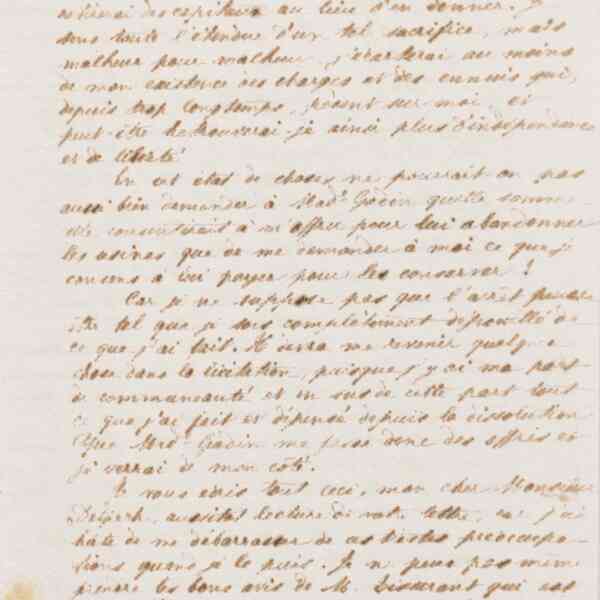 des capitaux au lieu d'en donner. Je
sens toute l'étendue d'un tel sacrifice, mais
malheur pour malheur j'écarterai au moins
de mon existence des charges et des ennuis qui,
depuis trop longtemps, pèsent sur moi, et
peut-être retrouverai-je ainsi plus d'indépendance
et de liberté
En cet état de choses ne pourrait-on pas
aussi bien demander à Mad.e Godin quelle somme
elle consentirait à m'offrir pour lui abandonner
les usines que de me demander à moi ce que je
consens à lui payer pour les conserver !
Car je ne suppose pas que l'arrêt puisse
être tel que je sois complètement dépouillé de
ce que j'ai fait. Il devra me revenir quelque
chose dans la licitation, puisque j'y ai ma part
de communauté et en sus de cette part tout
ce que j'ai fait et dépensé depuis la dissolution
Que Mad. Godin me fasse donc des offres et
je verrai de mon côté.
Je vous écris tout ceci, mon cher Monsieur
aussitôt lecture de votre lettre, car j'ai
hâte de me débarrasser de ces tristes préoccupa-
tions quand je le puis. Je ne peux pas même
prendre les bons avis de M. qui est